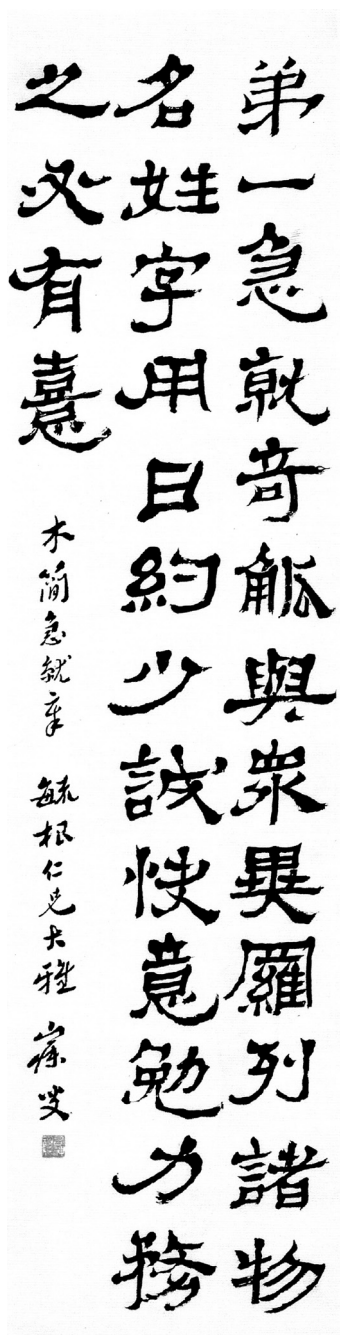 弟一急就奇觚與衆異羅列諸物
名姓字用日約少誠快意勉力務
之必有憙
木簡急就章 毓根仁兄大雅 寐叟